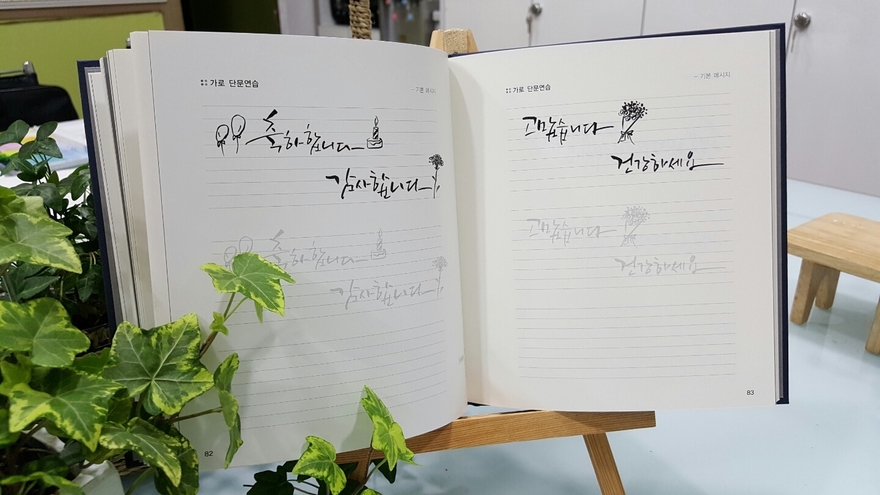 가로 단문연습
- 기본 메시지
축하합니다
감사합니다
축하합니다
감사합니다
82
가로 단문연습
- 기본 메시지
고맙습니다
건강하세요
고맙습니다
건강하세요
83